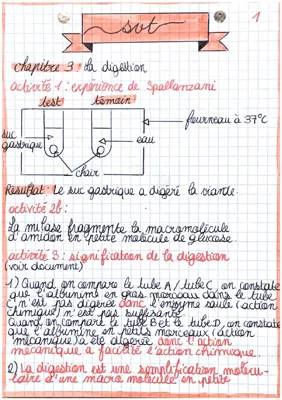 svt
1
chapitre 3 : la digestion
activité 1 : expérience de Spallanzani
test témain
fourneau à 37°C
suc
gastrique
eau
chair
Resultat : Le suc gastrique a digéré la viande.
activité 2b :
La milase fragmente la macromolécule
d'amidon en petite molécule de glucose.
activité 3 : signification de la digestion
(voir document)
1) Quand on compare le tube A / tube C, on constate
que l'albumine en gros morceaux dans le tube
C n'est pas digérée donc l'enzyme seule (action
chimique) n'est pas suffisante.
Quand on compart le tube B et le tube D, on constate
que l'albumine en petits morceaux (action
mécanique) a été digérée donc l'action
mécanique a facilité l'action chimique.
2) La digestion est une simplification molécu-
laire d'une macro molécule en petite